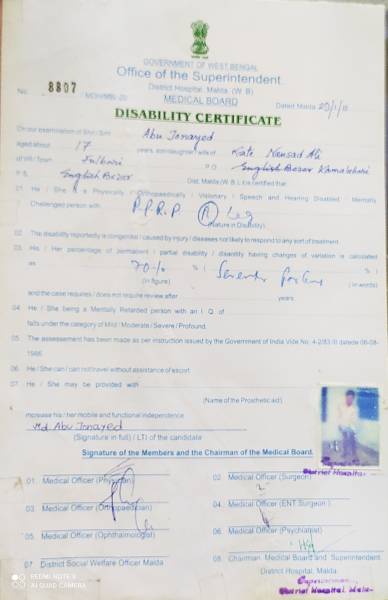 GOVERNMENT OF WEST BENGAL
Office of the Superintendent
District Hospital, Malda (W. B)
No. 8807
MEDICAL BOARD
Dated Malda
DISABILITY CERTIFICATE
On our examination of Shri / Smt Abu Jonayed
aged about 17 years, son/daughter/wife of Ali
of Vill / Town Fulbari P.O. English Bazar
P.S. English Bazar Dist. Malda (W. B), it is certified that
01. He / She is a Physically / Orthopaedically / Visionary / Speech and Hearing Disabled Mentally
Challenged person with P.P.R.P. (R) Leg
(Nature in Disability).
02. The disability reportedly is congenital / caused by injury / diseases not likely to respond to any sort of treatment.
03. His / Her percentage of permanent / partial disability / disantity having changes of variation is calculated
as 70% % ( Seventy ) %
(in figure) (in words)
and the case requires / does not require review after years
04. He / She being a Mentally Retarded person with an I Q of
falls under the category of Mild / Moderate / Severe / Profound.
05. The assessement has been made as per instruction issued by the Government of India Vide No. 4-2/83 datede 06-08-
1986.
06. He / She can / can not travel without assistance of escort
07. He / She may be provided with
(Name of the Prosthetic aid)
increase his / her mobile and functional independence.
Md Abu Jonayed
(Signature in full) / LTI of the candidata
Signature of the Members and the Chairman of the Medical Board.
01. Medical Officer (Physician)
02. Medical Officer (Surgeon)
03. Medical Officer (Orthopaedician)
04. Medical Officer (ENT Surgeon)
05. Medical Officer (Ophthalmologist)
06. Medical Officer (Psychiatist)
07. District Social Welfare Officer Malda
08. Chairman, Medical Board and Superintendent
District Hospital, Malda.
Superintendent
District Hospital, Malda
REDMI NOTE 9
AI QUAD CAMERA